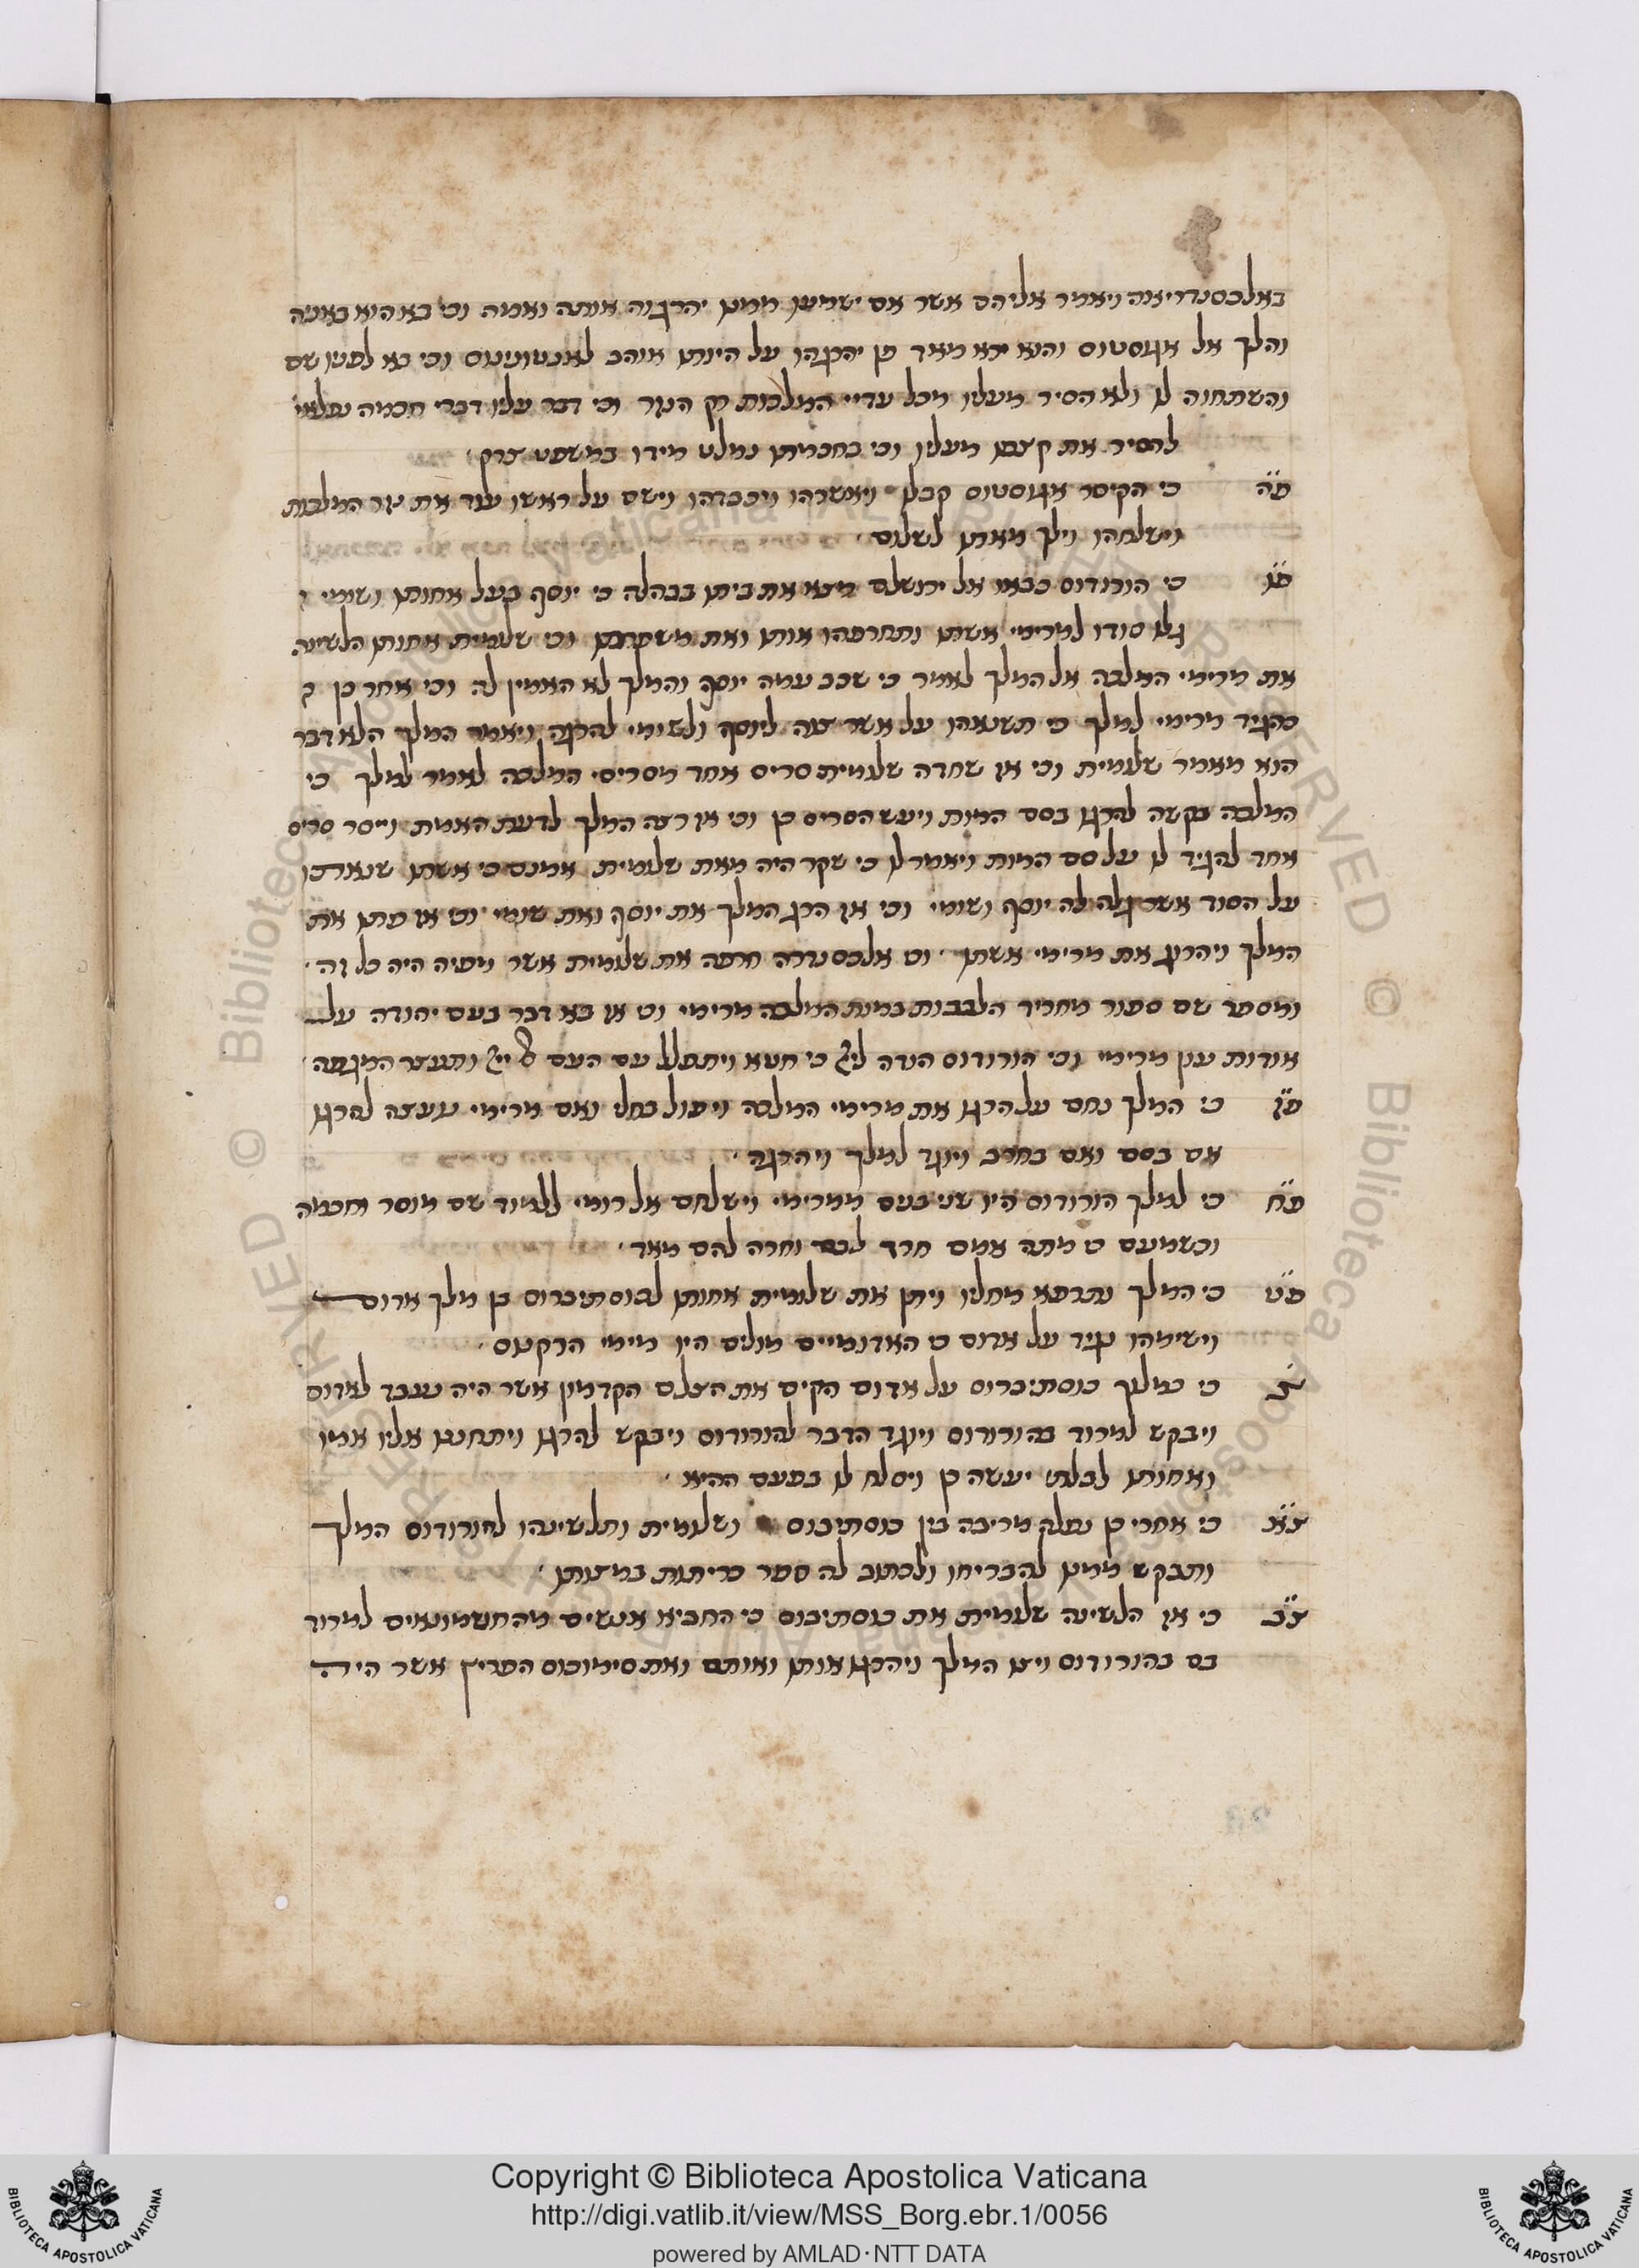 באלכסנדריאה ויאמר אליהם אשר אם ישמעון ממנו יהרגוה אותה ואמה וכי בא הוא באניה
והלך אל אגוסטוס והוא ירא מאד פן יהרגהו על היותו אוהב לאנטוניוס וכי בא לפניו שם
והשתחוה לו ולא הסיר מעליו מכל עדיי המלכות רק הנזר וכי דבר עליו דברי חכמה
להסיר את קצפו מעליו וכי בחכמתו נמלט מידו במשפט צדק
פ״ה כי הקיסר אגוסטוס קבלו ויאשרהו ויכבדהו וישם על ראשו עוד את נזר המלכות
וישלחהו וילך מאתו לשלום
פ״ו כי הורודוס בבאו אל ירושלם מצא את ביתו בבהלה כי יוסף בעל אחותו ושומי
גלו סודו למרימי אשתו ותחרפהו אותו ואת משפחתו וכי שלומית אחותו הלשינה
את מרימי המלכה אל המלך לאמר כי שכב עמה יוסף והמלך לא האמין לה וכי אחר כן
כהגיד מרימי למלך כי תשנאהו על אשר צוה ליוסף ולשומי להרגה ויאמר המלך הלא דבר
הוא מאמר שלומית וכי אז שחדה שלומית סריס אחד מסריסי המלכה לאמר למלך כי
המלכה בקשה להרגו בסם המות ויעש הסריס כן וכי אז רצה המלך לדעת האמת וייסר סריס
אחד להגיד לו על סם המות ויאמר לו כי שקר היה מאת שלומית אמנם כי אשתו שנאתהו
על הסוד אשר גלה לה יוסף ושומי וכי אז הרג המלך את יוסף ואת שומי וכי אז פתו את
המלך ויהרוג את מרימי אשתו וכי אלכסנדרה חרפה את שלומית אשר מפיה היה כל זה
ומספר שם ספור מחריד הלבבות במות המלכה מרימי וכי אז בא דבר בעם יהודה על
אודות עון מרימי וכי הורודוס הודה לייי כי חטא ויתפלל עם העם אל ייי ותעצר המגפה
פ״ז כי המלך נחם על הרגו את מרימי המלכה ויפול בחלי ואם מרימי נועצה להרגו
אם בסם ואם בחרב ויוגד למלך ויהרגה
פ״ח כי למלך הורודוס היו שני בנים ממרימי וישלחם אל רומי ללמוד שם מוסר וחכמה
וכשמעם כי מתה אמם חרד לבם וחרה להם מאד
פ״ט כי המלך נתרפא מחליו ויתן את שלומית אחותו לכוסתיברוס בן מלך אדום
וישימהו נגיד על אדום כי האדומיים מולים היו מימי הרקנוס
צ׳ כי כמלוך כוסתיברוס על אדום הקים את הצלם הקדמון אשר היה נעבד לאדום
ויבקש למרוד בהורודוס ויוגד הדבר להורודוס ויבקש להרגו ויתחננו אליו אמו
ואחותו לבלתי יעשה כן ויסלח לו בפעם ההיא
צ״א כי אחרי כן נפלה מריבה בין כוסתיבוס ושלומית ותלשינהו להורודוס המלך
ותבקש ממנו להבריחו ולכתוב לה ספר כריתות במצותו
צ״ב כי אז הלשינה שלומית את כוסתיבוס כי החביא אנשים מהחשמונאים למרוד
בם בהורודוס ויצו המלך ויהרגו אותו ואותם ואת סימוכוס הפריץ אשר היה
Copyright © Biblioteca Apostolica Vaticana
http://digi.vatlib.it/view/MSS_Borg.ebr.1/0056
powered by AMLAD·NTT DATA